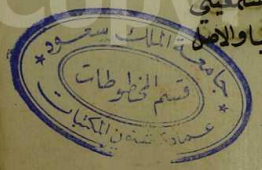 والاصل
جامعة الملك سعود
قسم المخطوطات
عمادة شئون المكتبات